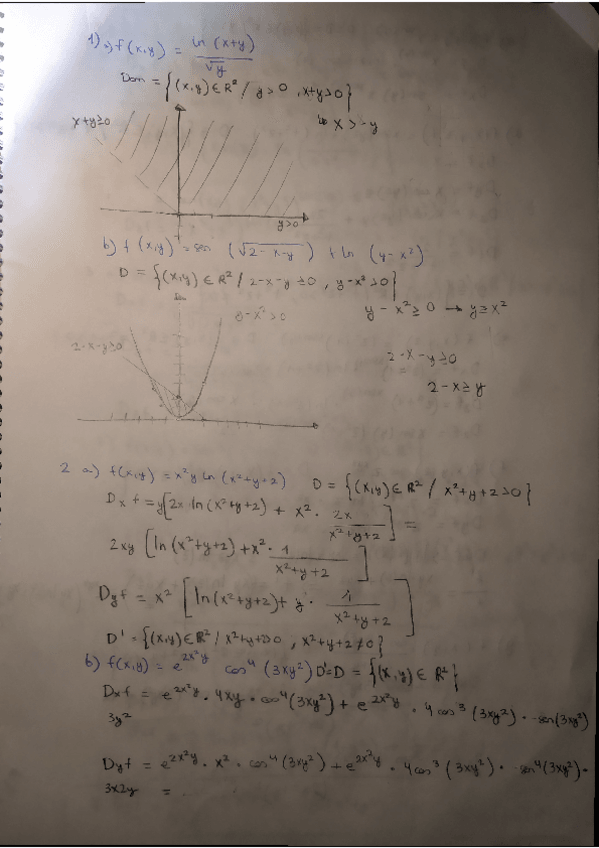 1) a) f(x,y) = ln (x+y) / √y
Dom = {(x,y) ∈ R² / y>0, x+y>0}
↳ x > -y
x+y≥0
y>0
b) f(x,y) = sen (√2-x-y) + ln (y-x²)
D = {(x,y) ∈ R² / 2-x-y ≥0, y-x²>0}
y - x² ≥ 0 → y ≥ x²
y-x²>0
2-x-y≥0
2-x-y≥0
2-x≥y
2 a) f(x,y) = x²y ln (x²+y+2) D = {(x,y) ∈ R² / x²+y+2>0}
Dx f = y[2x ln (x²+y+2) + x² · 2x / x²+y+2] =
2xy [ln (x²+y+2) + x² · 1 / x²+y+2]
Dy f = x² [ln (x²+y+2) + y · 1 / x²+y+2]
D' = {(x,y) ∈ R² / x²+y+2>0, x²+y+2≠0}
b) f(x,y) = e^2x²y cos⁴ (3xy²) D'=D = {(x,y) ∈ R²}
Dx f = e^2x²y · 4xy · cos⁴(3xy²) + e^2x²y · 4cos³ (3xy²) · -sen(3xy²)
3y²
Dy f = e^2x²y · x² · cos⁴ (3xy²) + e^2x²y · 4cos³ (3xy²) · -sen⁴(3xy²) ·
3x2y =